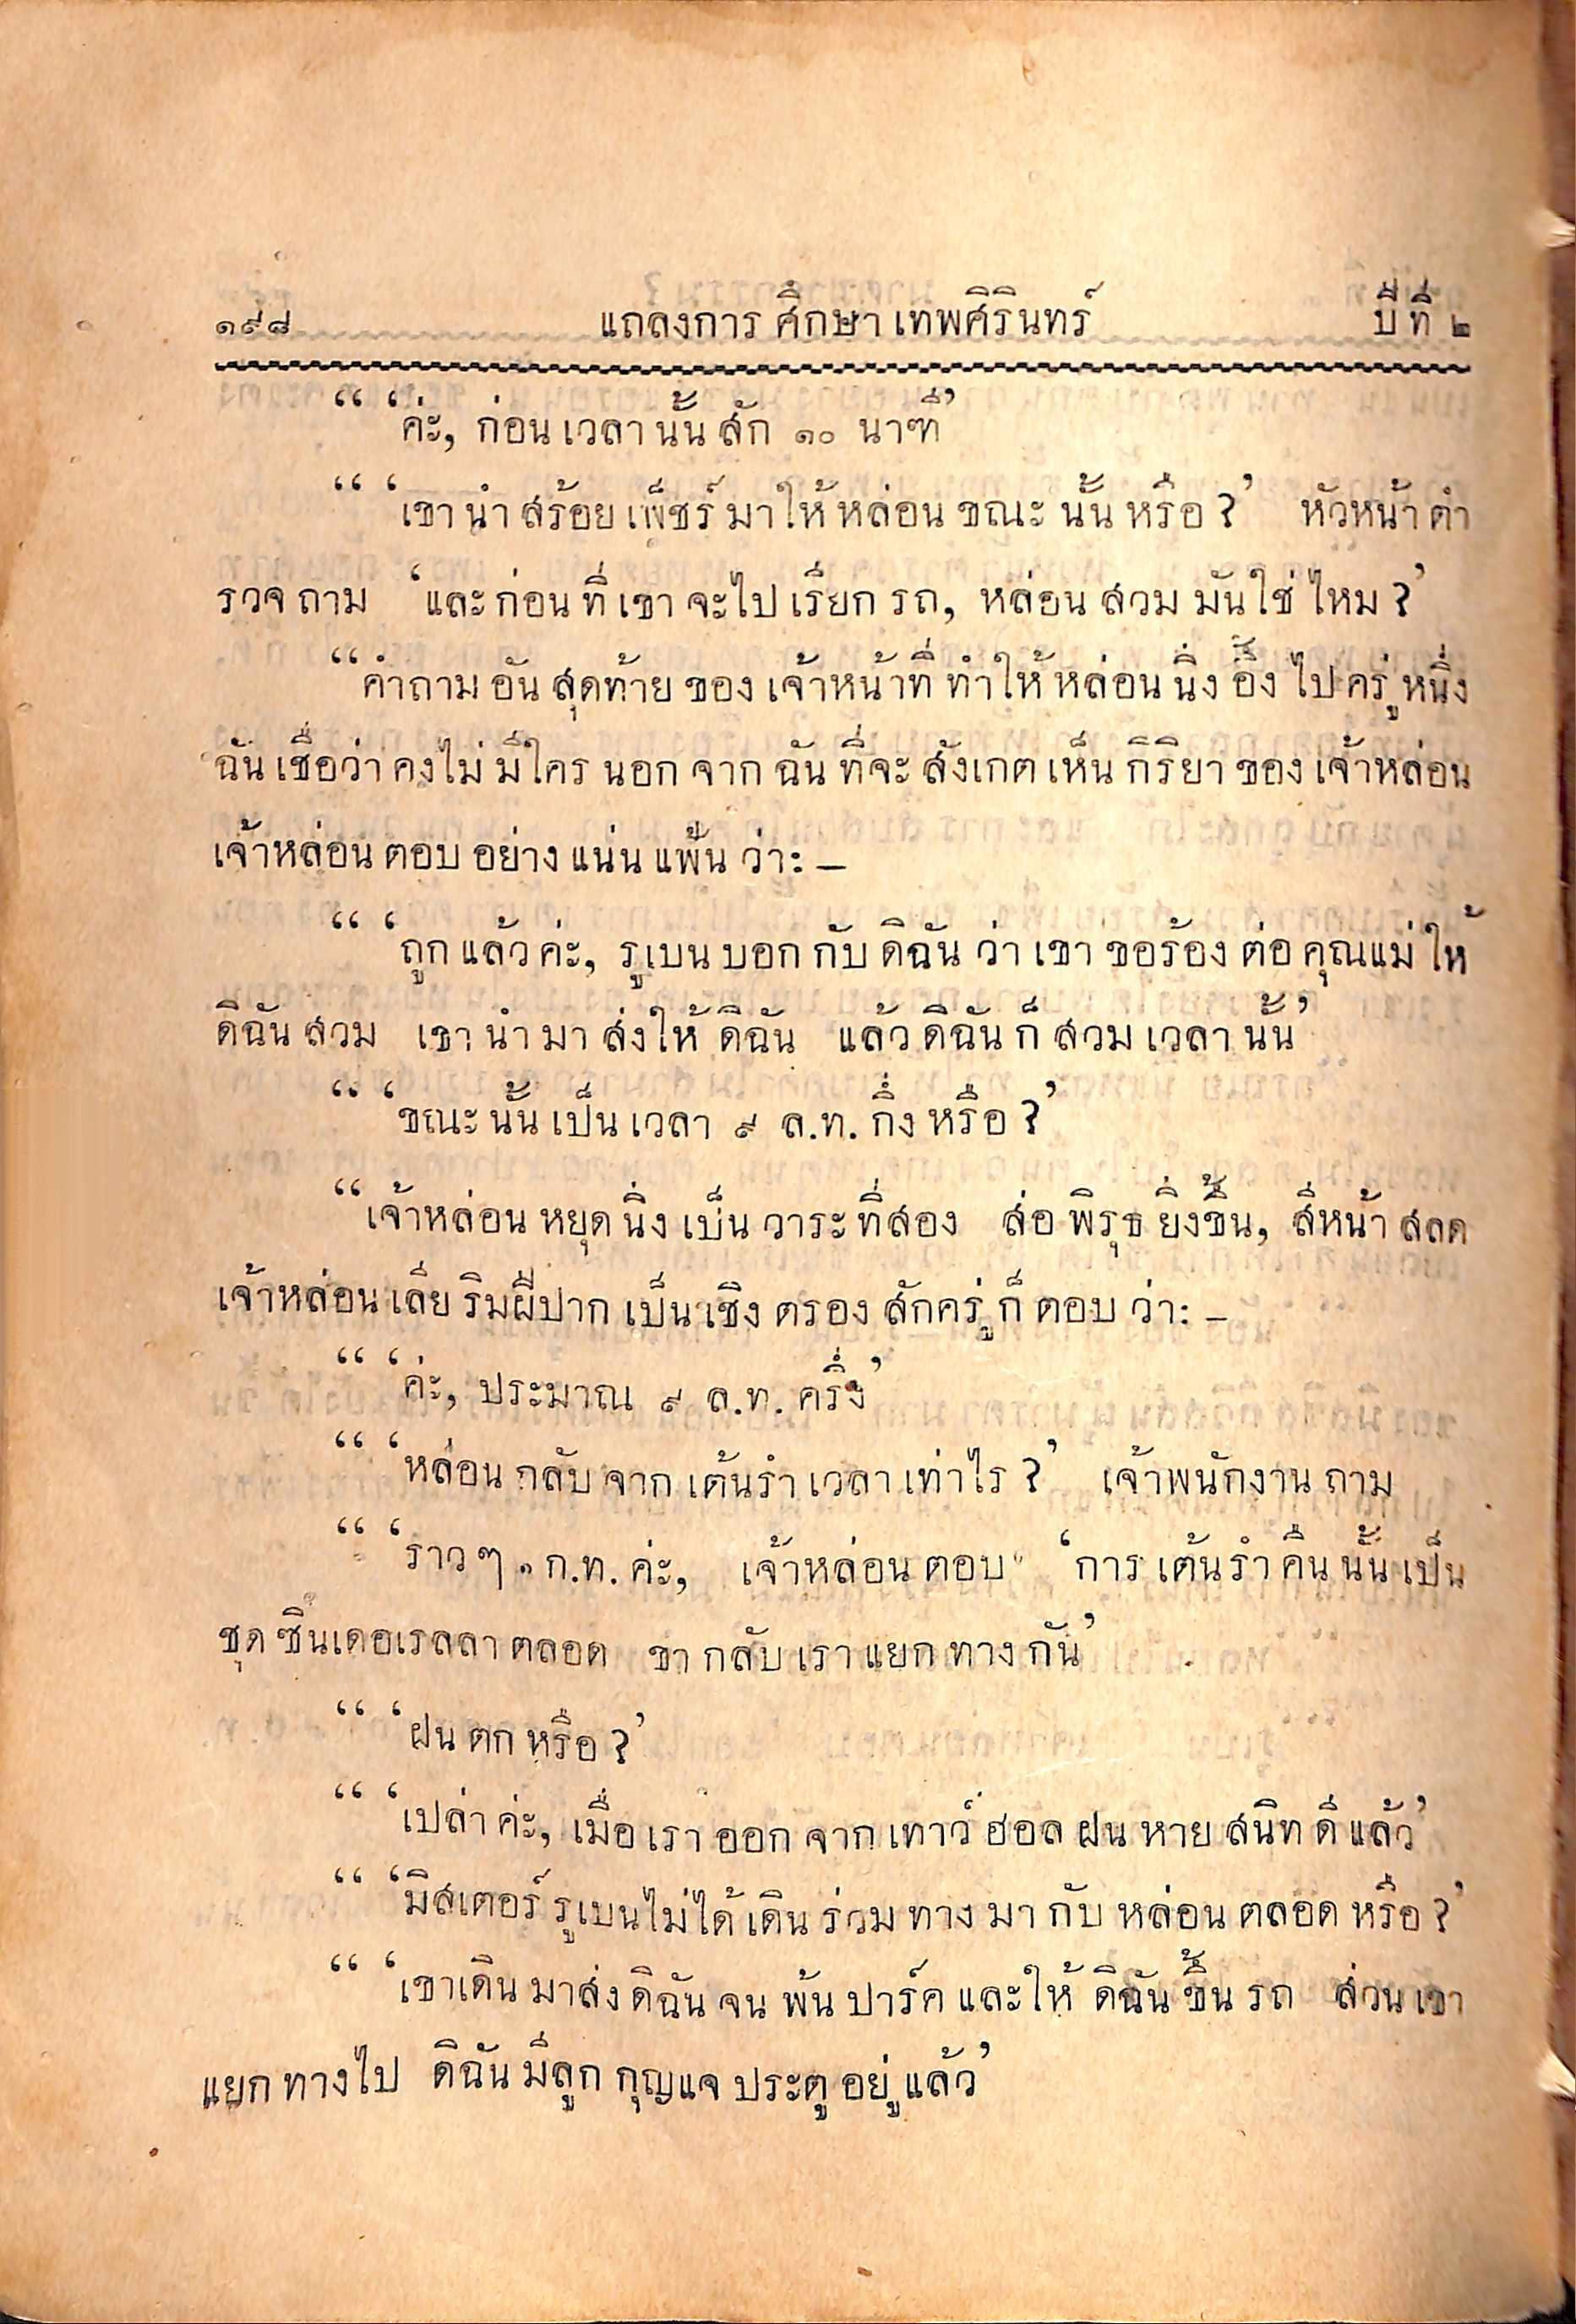 ๑๙๘ แถลงการศึกษาเทพศิรินทร์ ปีที่ ๒
“ ‘ค่ะ, ก่อนเวลานั้นสัก ๑๐ นาฑี’
“ ‘เขานำสร้อยเพ็ชร์มาให้หล่อนขณะนั้นหรือ ?’ หัวหน้าตำ
รวจถาม ‘และก่อนที่เขาจะไปเรียกรถ, หล่อนสวมมันใช่ไหม ?’
“คำถามอันสุดท้ายของเจ้าหน้าที่ทำให้หล่อนนิ่งอึ้งไปครู่หนึ่ง
ฉันเชื่อว่าคงไม่มีใครนอกจากฉันที่จะสังเกตเห็นกิริยาของเจ้าหล่อน
เจ้าหล่อนตอบอย่างแน่นแฟ้นว่า: —
“ ‘ถูกแล้วค่ะ, รูเบนบอกกับดิฉันว่าเขาขอร้องต่อคุณแม่ให้
ดิฉันสวม เขานำมาส่งให้ดิฉัน แล้วดิฉันก็สวมเวลานั้น’
“ ‘ขณะนั้นเป็นเวลา ๙ ล.ท. กึ่งหรือ ?’
“เจ้าหล่อนหยุดนิ่งเป็นวาระที่สอง ส่อพิรุธยิ่งขึ้น, สีหน้าสลด
เจ้าหล่อนเลียริมฝีปากเป็นเชิงตรองสักครู่ก็ตอบว่า: —
“ ‘ค่ะ, ประมาณ ๙ ล.ท. ครึ่ง’
“ ‘หล่อนกลับจากเต้นรำเวลาเท่าไร ?’ เจ้าพนักงานถาม
“ ‘ราวๆ ๑ ก.ท. ค่ะ, เจ้าหล่อนตอบ ‘การเต้นรำคืนนั้นเป็น
ชุดซินเดอเรลลาตลอด ขากลับเราแยกทางกัน’
“ ‘ฝนตกหรือ ?’
“ ‘เปล่าค่ะ, เมื่อเราออกจากเทาว์ฮอลฝนหายสนิทดีแล้ว’
“ ‘มิสเตอร์รูเบนไม่ได้เดินร่วมทางมากับหล่อนตลอดหรือ ?’
“ ‘เขาเดินมาส่งดิฉันจนพ้นปาร์คและให้ดิฉันขึ้นรถ ส่วนเขา
แยกทางไป ดิฉันมีลูกกุญแจประตูอยู่แล้ว’